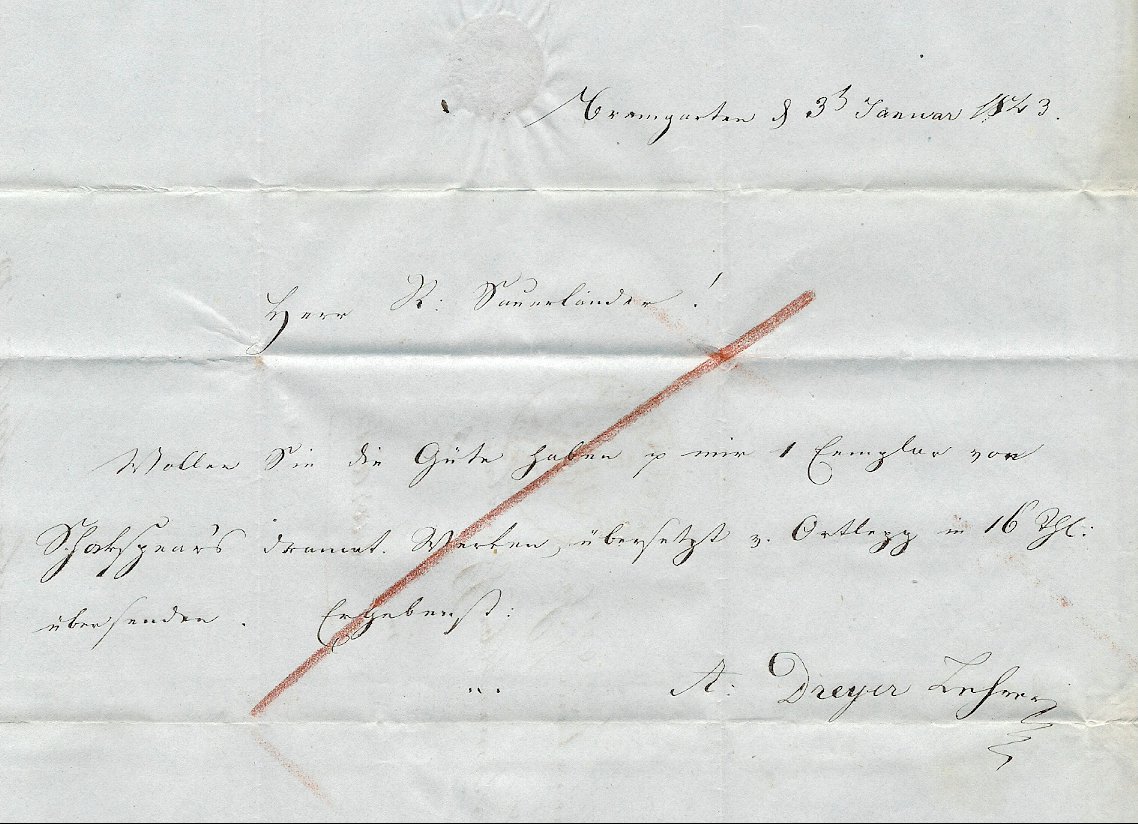 Bremgarten d 3t Januar 1843.
Herr R: Sauerländer!
Wollen Sie die Güte haben mir 1 Exemplar von
Schakspear's dramat. Werken, übersetzt v. Ortlepp in 16 Thl:
übersenden. Ergebenst:
A: Dreyer Lehrer